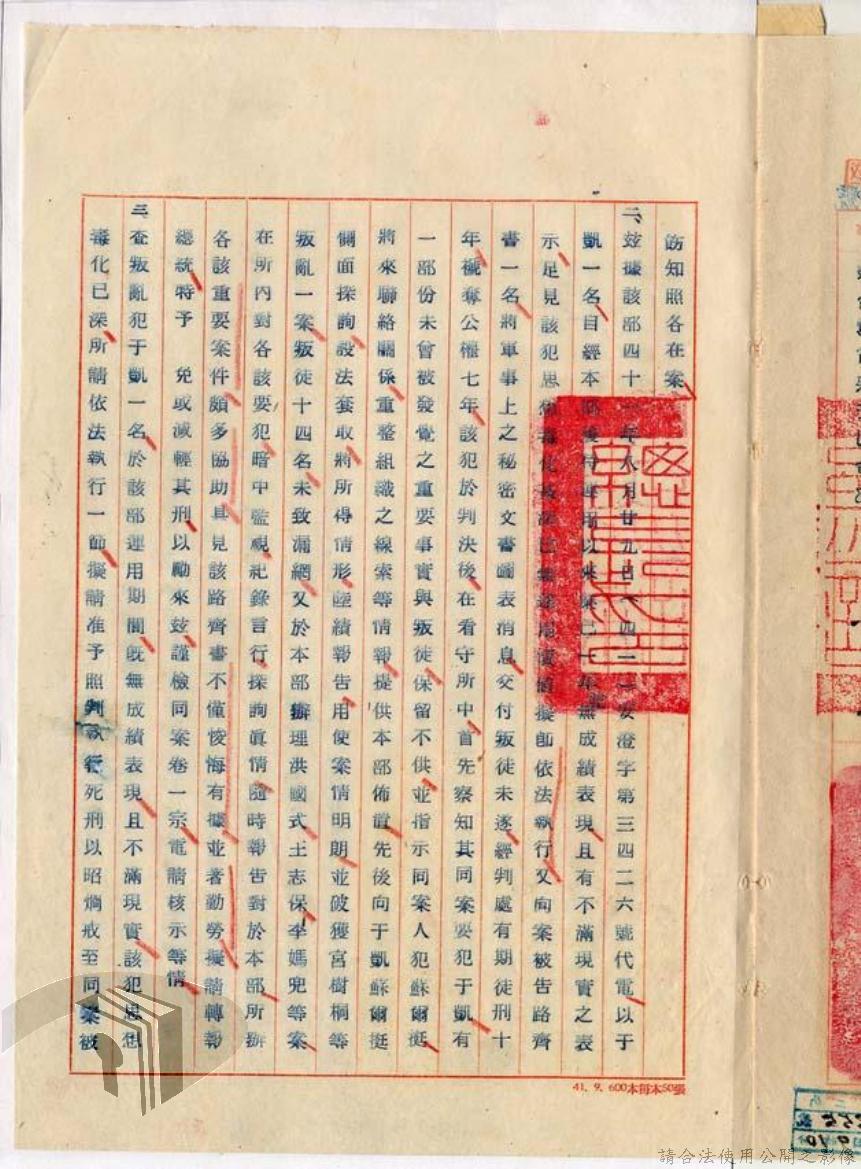 飭知照各在案
二、玆據該部四十一年八月廿九日(四一)安澄字第三四二六號代電以于
凱一名目經本部 運用以來 無成績表現且有不滿現實之表
示足見該犯思想 擬卽依法執行又同案被告路齊
書一名將軍事上之秘密文書圖表消息交付叛徒未遂經判處有期徒刑十
年褫奪公權七年該犯於判決後在看守所中首先察知其同案要犯于凱有
一部份未曾被發覺之重要事實與叛徒保留不供並指示同案人犯蘇爾挺
將來聯絡關係重整組織之線索等情報提供本部佈置先後向于凱蘇爾挺
側面探詢設法套取將所得情形陸續報告用使案情明朗並破獲宮樹桐等
叛亂一案叛徒十四名未致漏網又於本部辦理洪國式王志保李媽兜等案
在所內對各該要犯暗中監視紀錄言行探詢眞情隨時報告對於本部所辦
各該重要案件頗多協助具見該路齊書不僅悛悔有據並著勤勞擬請轉報
總統特予 免或減輕其刑以勵來玆謹檢同案卷一宗電請核示等情
三、查叛亂犯于凱一名於該部運用期間旣無成績表現且不滿現實該犯思想
毒化已深所請依法執行一節擬請准予照判執行死刑以昭烱戒至同案被
41. 9. 600本每本50張
請合法使用公開之影像